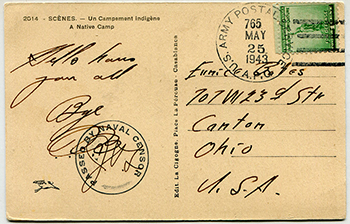 2014 - SCÈNES. - Un Campement indigène
A Native Camp
Hello hans
you all
Bye
PASSED BY NAVAL CENSOR
Edit. La Cigogne, Place La Pérouse Casablanca
U.S. ARMY POSTAL
765
MAY
25
1943
Eunice
707 W 23rd Str
Canton
Ohio
U.S.A